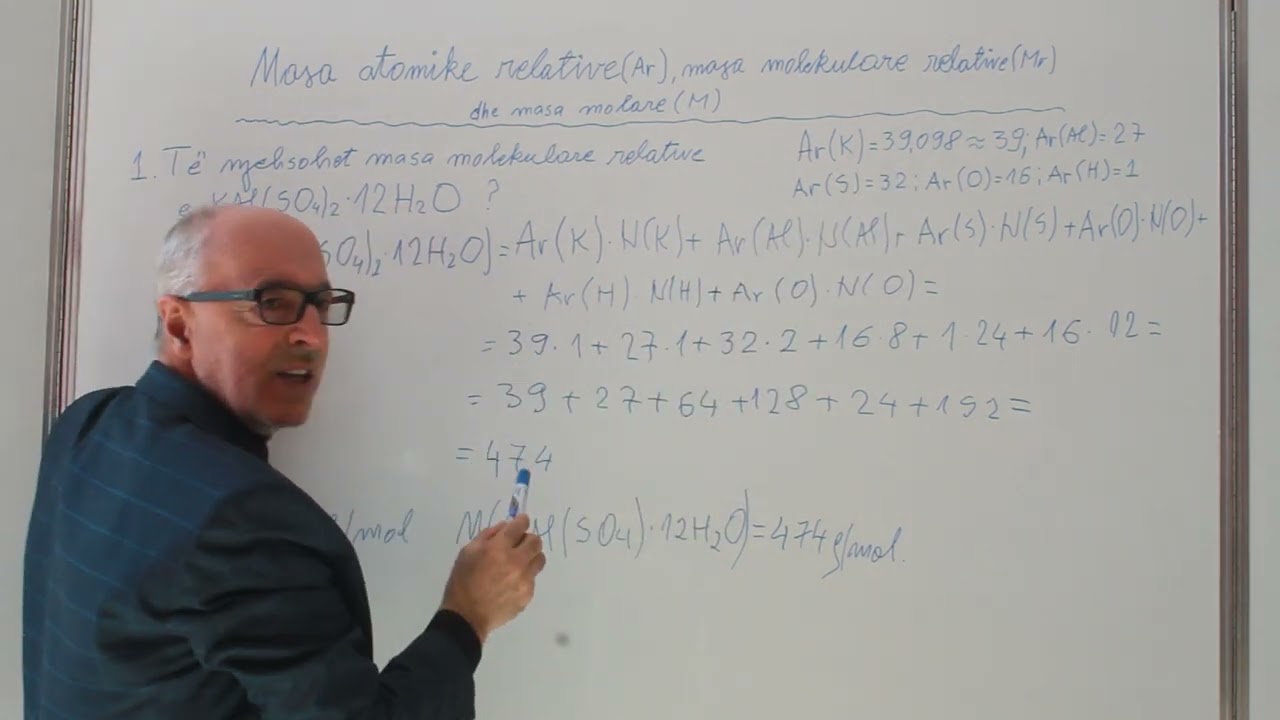 Masa atomike relative (Ar), masa molekulare relative (Mr)
dhe masa molare (M)
1. Të njehsohet masa molekulare relative
Ar(K)=39,098≈39; Ar(Al)=27
Ar(S)=32; Ar(O)=16; Ar(H)=1
e KAl(SO₄)₂·12H₂O ?
SO₄)₂·12H₂O)=Ar(K)·N(K)+Ar(Al)·N(Al)+Ar(S)·N(S)+Ar(O)·N(O)+
+Ar(H)·N(H)+Ar(O)·N(O)=
=39·1+27·1+32·2+16·8+1·24+16·12=
=39+27+64+128+24+192=
=474
g/mol M( Al(SO₄)·12H₂O)=474g/mol.